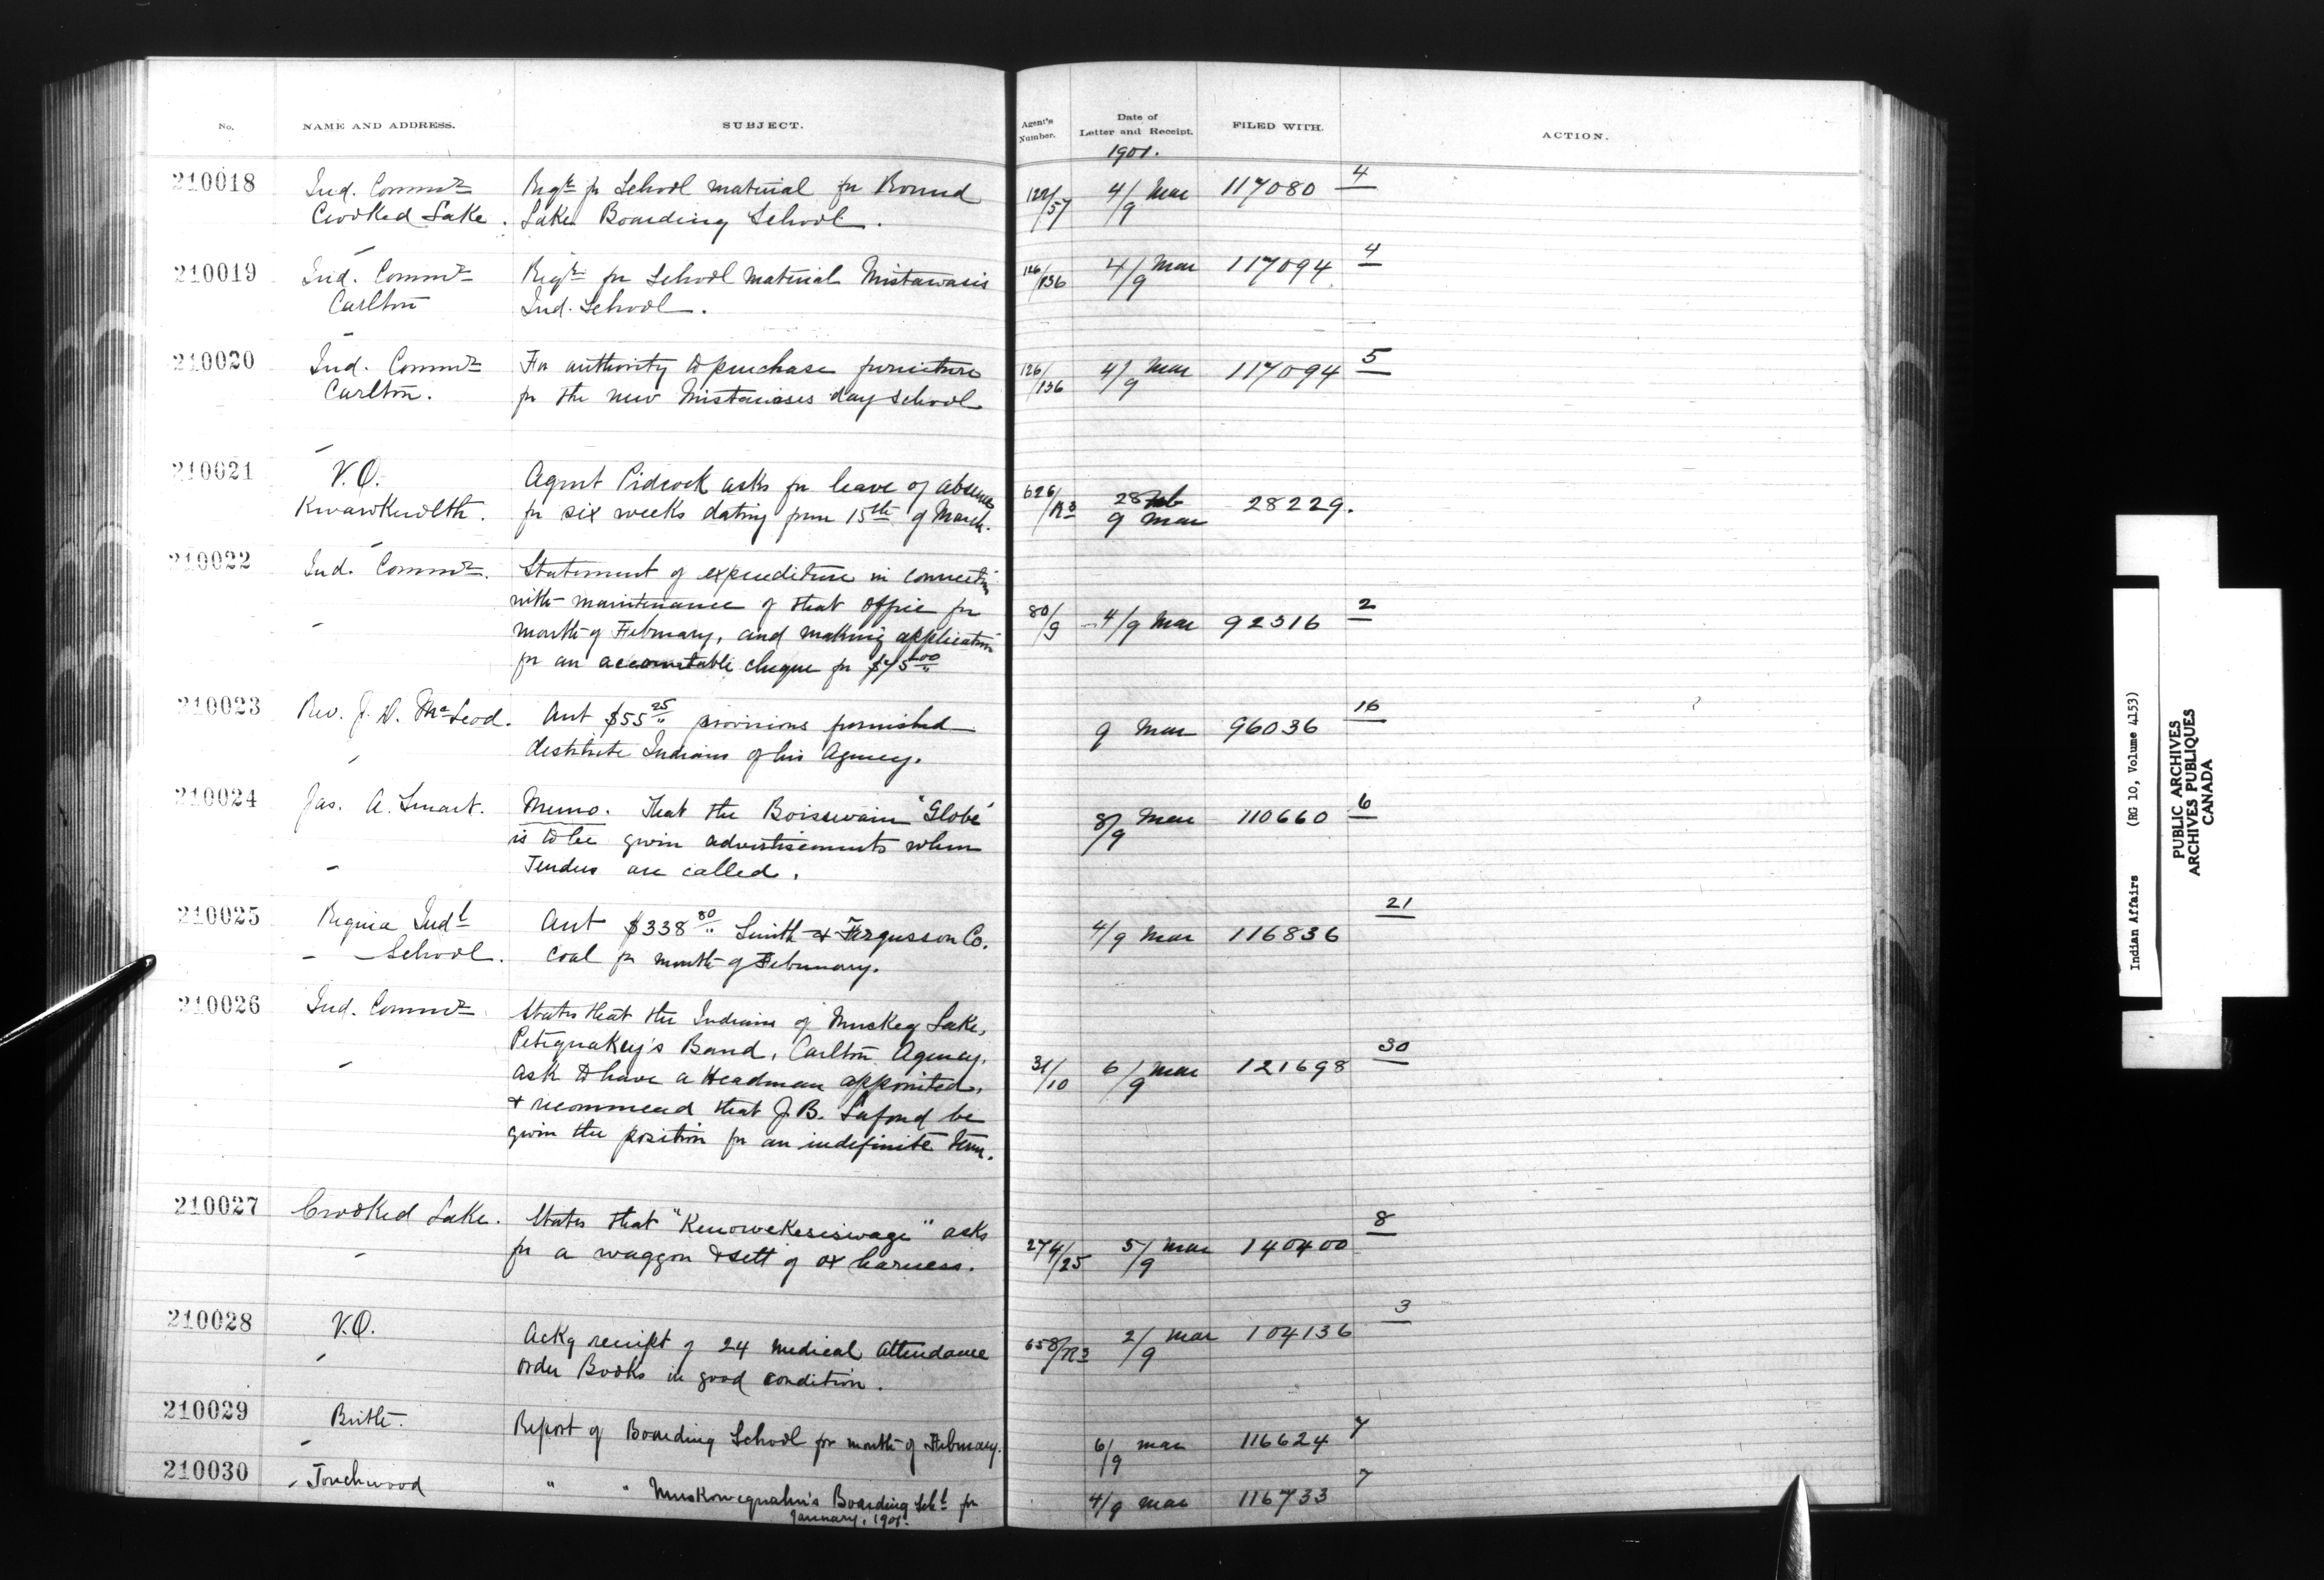 No. NAME AND ADDRESS. SUBJECT. Agent's Number. Date of Letter and Receipt. FILED WITH. ACTION.
1901.
210018 Ind. Commr Reqn for School material for Round 122/57 4/9 Mar 117080 4
Crooked Lake. Lake Boarding School.
210019 Ind. Commr Reqn for School material Mistawasis 126/136 4/9 Mar 117094 4
Carlton Ind. School.
210020 Ind. Commr For authority to purchase furniture 126/136 4/9 Mar 117094 5
Carlton. for the new Mistawasis day school
210021 V.O. Agent Pidcock asks for leave of absence 626/R3 28 Feb 28229.
Kwawkewlth. for six weeks dating from 15th of March. 9 Mar
210022 Ind. Commr. Statement of expenditure in connection
with maintenance of that office for 80/9 4/9 Mar 92316 2
month of February, and making application
for an accountable cheque for $45 00
210023 Rev. J. D. McLeod. Acct $55 25 provisions furnished 9 Mar 96036 16
destitute Indians of his Agency.
210024 Jas. A. Smart. Memo. That the Boissevain "Globe" 8/9 Mar 110660 6
is to be given advertisements when
Tenders are called.
210025 Regina Indl Acct $338 80 Smith & Fergusson Co. 4/9 Mar 116836 21
School. Coal for month of February.
210026 Ind. Commr States that the Indians of Muskeg Lake,
Petequakey's Band, Carlton Agency, 31/10 6/9 Mar 121698 30
ask to have a Headman appointed,
& recommend that J. B. Lafond be
given the position for an indefinite term.
210027 Crooked Lake. States that "Kenowekesiswage" asks 274/25 5/9 Mar 140400 8
for a waggon & sett of ox harness.
210028 V.O. Ackg receipt of 24 medical attendance 658/R3 2/9 Mar 104136 3
order Books in good condition.
210029 Birtle. Report of Boarding School for month of February. 6/9 Mar 116624 7
210030 Touchwood " " Muskowequahn's Boarding Schl for 4/9 Mar 116733 7
January, 1901.
Indian Affairs (RG 10, Volume 4153)
PUBLIC ARCHIVES
ARCHIVES PUBLIQUES
CANADA